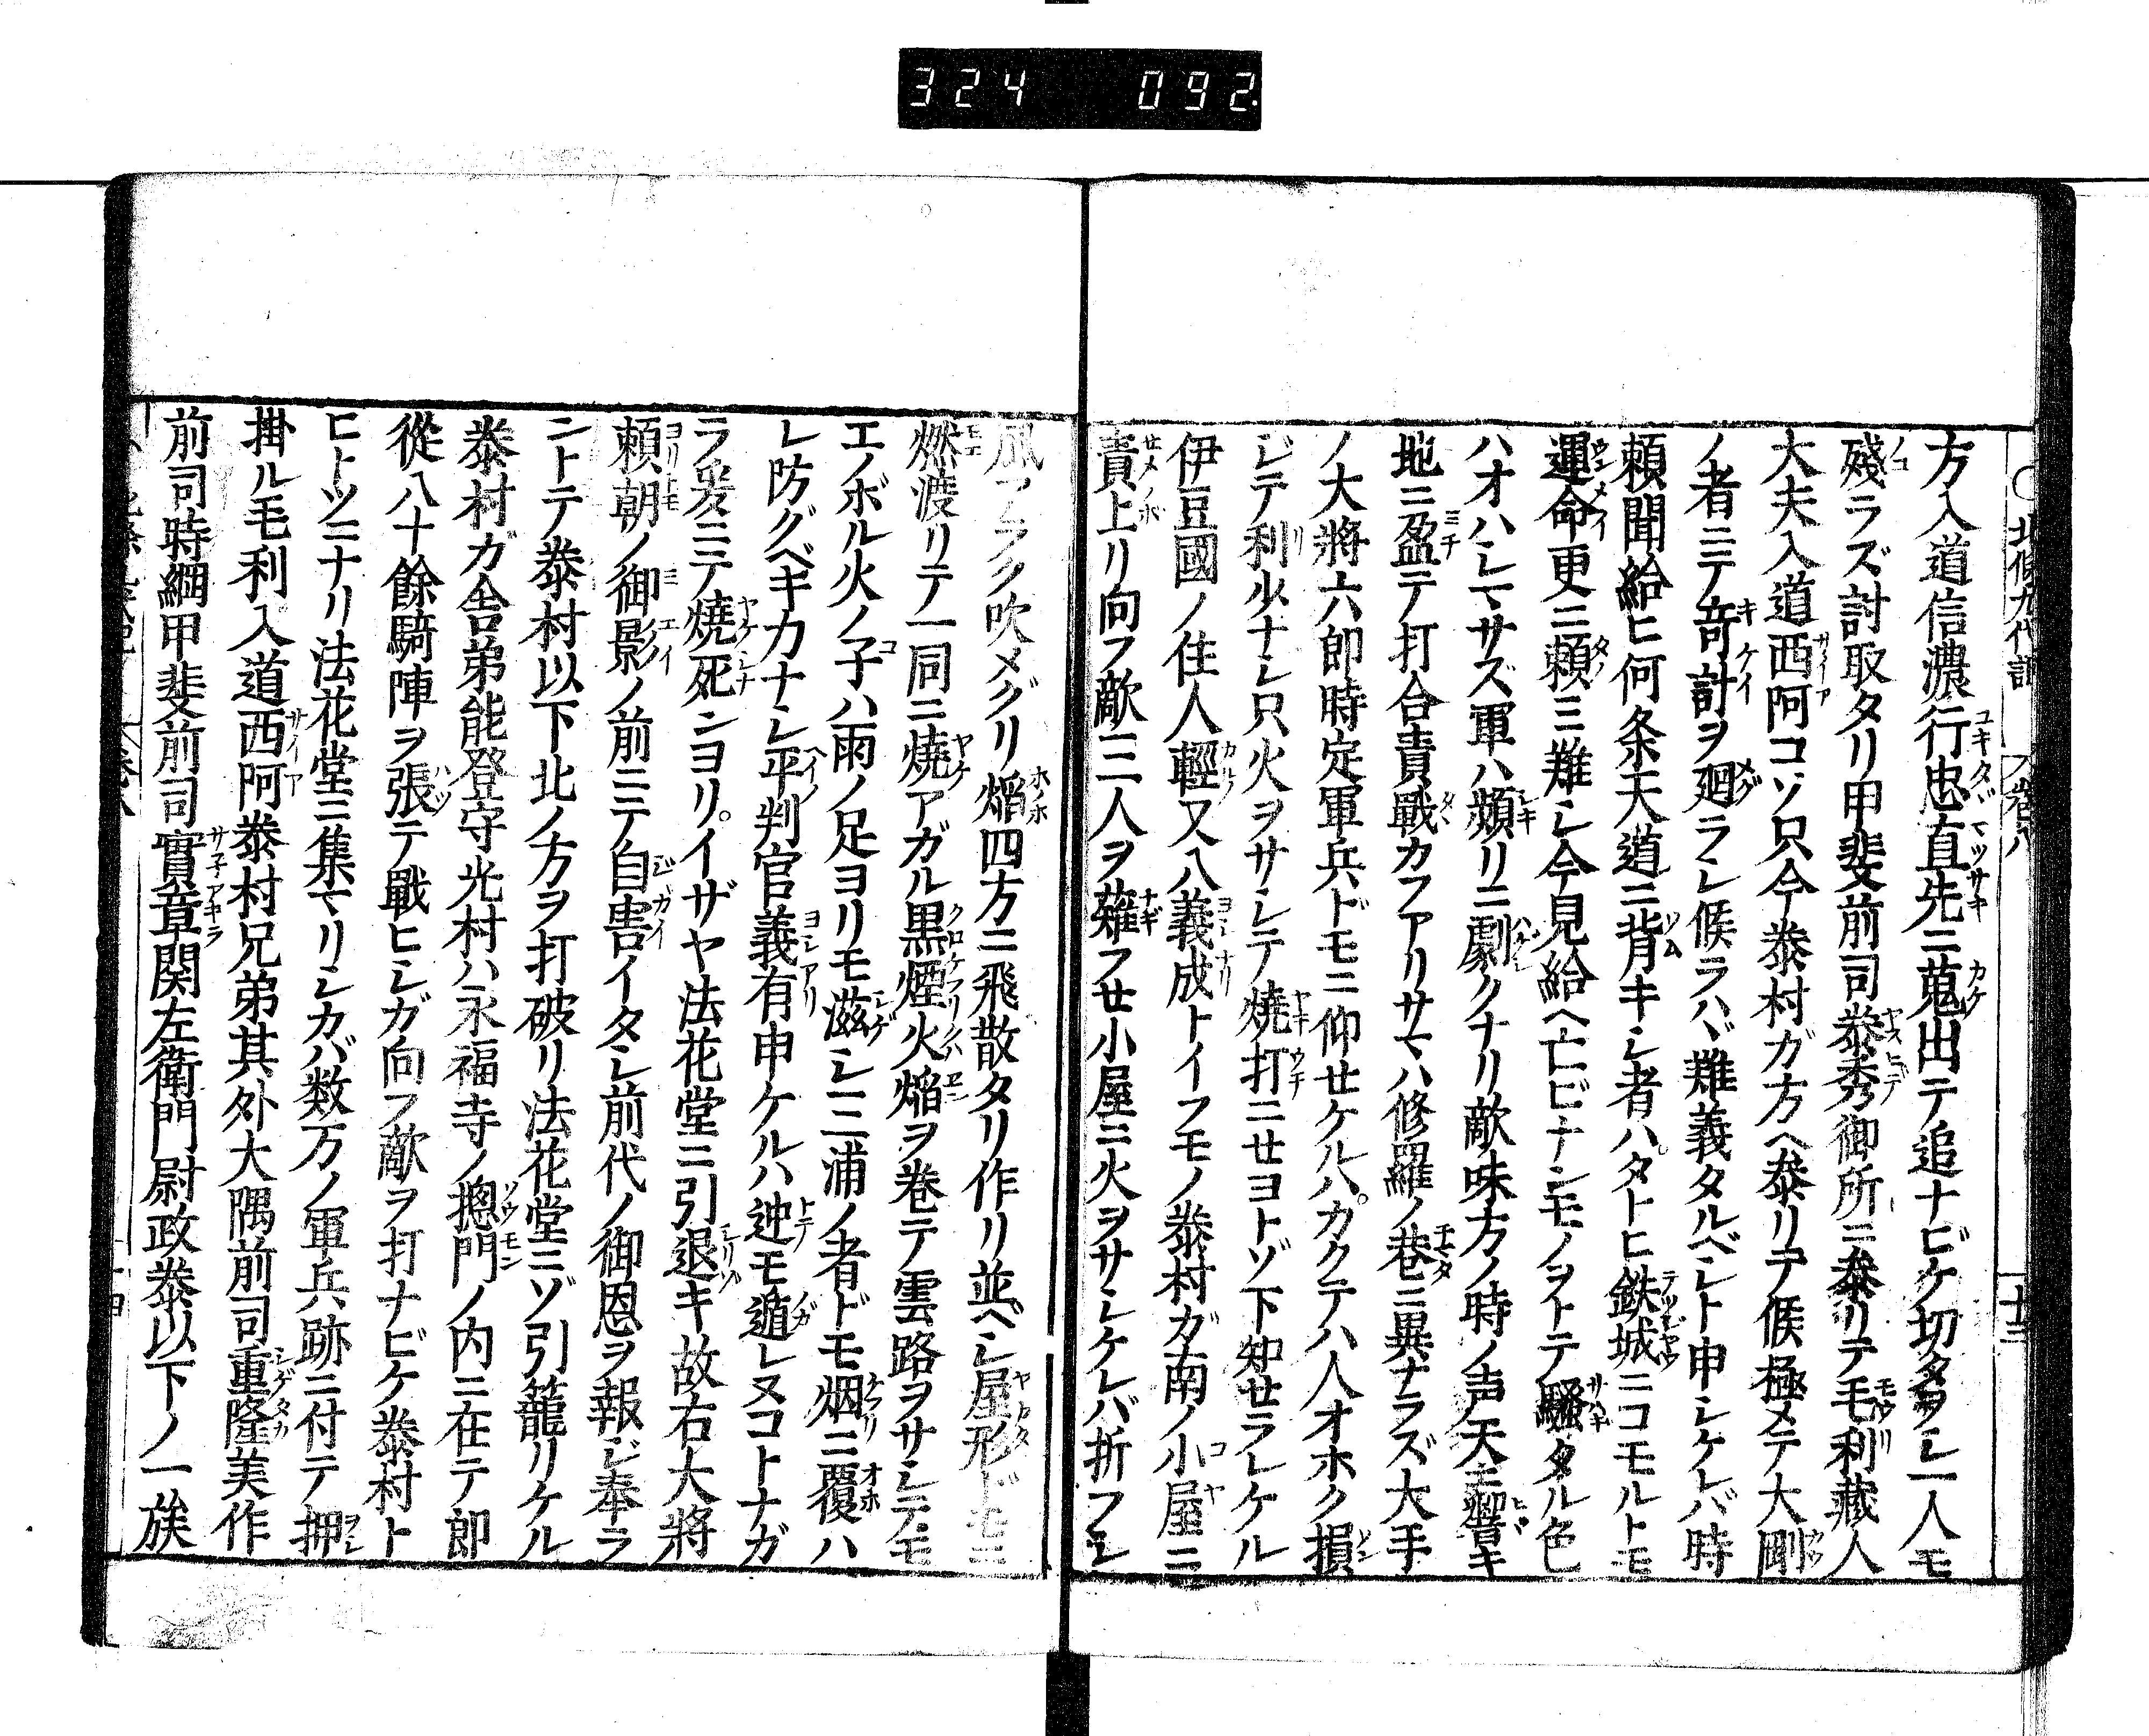 324 092.
○北條九代記 巻八 十三
方入道信濃行忠直先ニ蒐出テ追ナビケ切タヲシ一人モ
殘ラズ討取タリ甲斐前司泰秀御所ニ參リテ毛利藏人
大夫入道西阿コソ只今泰村ガ方ヘ參リテ候極メテ大剛
ノ者ニテ奇計ヲ廻ラシ候ラハヾ難義タルベシト申シケレバ時
頼聞給ヒ何条天道ニ背キシ者ハタトヒ鉄城ニコモルトモ
運命更ニ頼ミ難シ今見給ヘ亡ビナンモノヲトテ騷タル色
ハオハシマサズ軍ハ頻リニ劇クナリ敵味方ノ時ノ声天ニ響キ
地ニ盈テ打合責戰カフアリサマハ修羅ノ巷ニ異ナラズ大手
ノ大將六郎時定軍兵ドモニ仰セケルハカクテハ人オホク損
ジテ利少ナシ只火ヲサシテ燒打ニセヨトゾ下知セラレケル
伊豆國ノ住人輕又八義成トイフモノ泰村ガ南ノ小屋ニ
責上リ向フ敵三人ヲ薙フセ小屋ニ火ヲサシケレバ折フシ
風アラク吹メグリ焔四方ニ飛散タリ作リ並ベシ屋形ドモニ
燃渡リテ一同ニ燒アガル黒煙火焔ヲ巻テ雲路ヲサシテモ
エノボル火ノ子ハ雨ノ足ヨリモ滋シ三浦ノ者ドモ烟ニ覆ハ
レ防グベキカナシ平判官義有申ケルハ迚モ遁レヌコトナガ
ラ爰ニテ燒死ンヨリイザヤ法花堂ニ引退キ故右大將
頼朝ノ御影ノ前ニテ自害イタシ前代ノ御恩ヲ報ジ奉ラ
ントテ泰村以下北ノ方ヲ打破リ法花堂ニゾ引籠リケル
泰村ガ舎弟能登守光村ハ永福寺ノ摠門ノ内ニ在テ郎
從八十餘騎陣ヲ張テ戰ヒシガ向フ敵ヲ打ナビケ泰村ト
ヒトツニナリ法花堂ニ集マリシカバ数万ノ軍兵跡ニ付テ押
掛ル毛利入道西阿泰村兄弟其外大隅前司重隆美作
前司時綱甲斐前司實章関左衛門尉政泰以下ノ一族